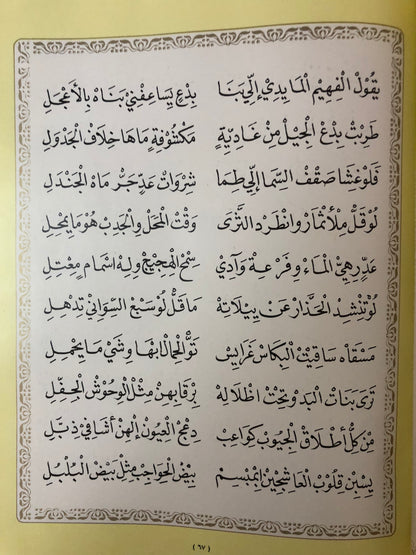 يَقُوْلَ الْفِهِيْمِ الْمَايِدِيْ إِلِّيْ بَنَا بِدْعٍ يَسَاعِفْنِيْ بَنَاهْ بِالَاعْجَلِ
طَرِبْتْ بِدْعَ الْجِيْلْ مِنْ غَادِيَّةٍ مَكْشُوْفِةٍ مَاهَا خِلَافَ الْجَدْوَلِ
فَلَوْ غَشَا صَقْفَ السِّمَا إِلِّيْ طِمَا شَرْوَاتْ عَدٍّ حَرّْ مَاهَ الْجَنْدَلِ
لَوْ قَلّْ مِلْأَثْمَارْ وَانْطَرْدَ الثَّرَى وَقْتَ الْمَحَلْ وَالْجَدْبْ هُوْ مَا يَمْحِلِ
عَدٍّ رِهِيَّ الْمَاءْ وَفَرْعَةْ وَآدِيْ سِمْحَ الْفِجِيْجْ وْلِهْ اسْمَامٍ مَعْتِلِ
لَوْ تَنْشِدَ الْحَذَّارْ عَنْ بِيْلَاتِهْ مَا قَلّْ لَوْ سَبْعَ السِّوَانِيْ تِدْهَلِ
مَسْقَاهْ سَاقِيْتَ الْبِكَاسْ غَرَايِسْ نَوَّ الْحَمَالْ ابْهَا وِشَيٍّ مَا يَحْمِلِ
تَرَى بَنَاتَ الْبَدُوْ تَحْتَ اظْلَالِهْ بِرْقَابِهِنْ مِثْلَ الْوِحُوْشَ الْجِفَّلِ
مِنْ كَلّْ أَطْلَاقَ الْجِيُوْبْ كَوَاعِبْ دِعْجَ الْعِيُوْنْ إِلْهِنْ أَشَافِيْ ذِبَّلِ
يِسْبِنْ قِلُوْبَ الْعَاشِجِيْنْ ابْمَبْسِمْ بِيْضَ الْحَوَاجِبْ مِثِلْ بَيْضَ الْبَلْبَلِ
( ٦٧ )